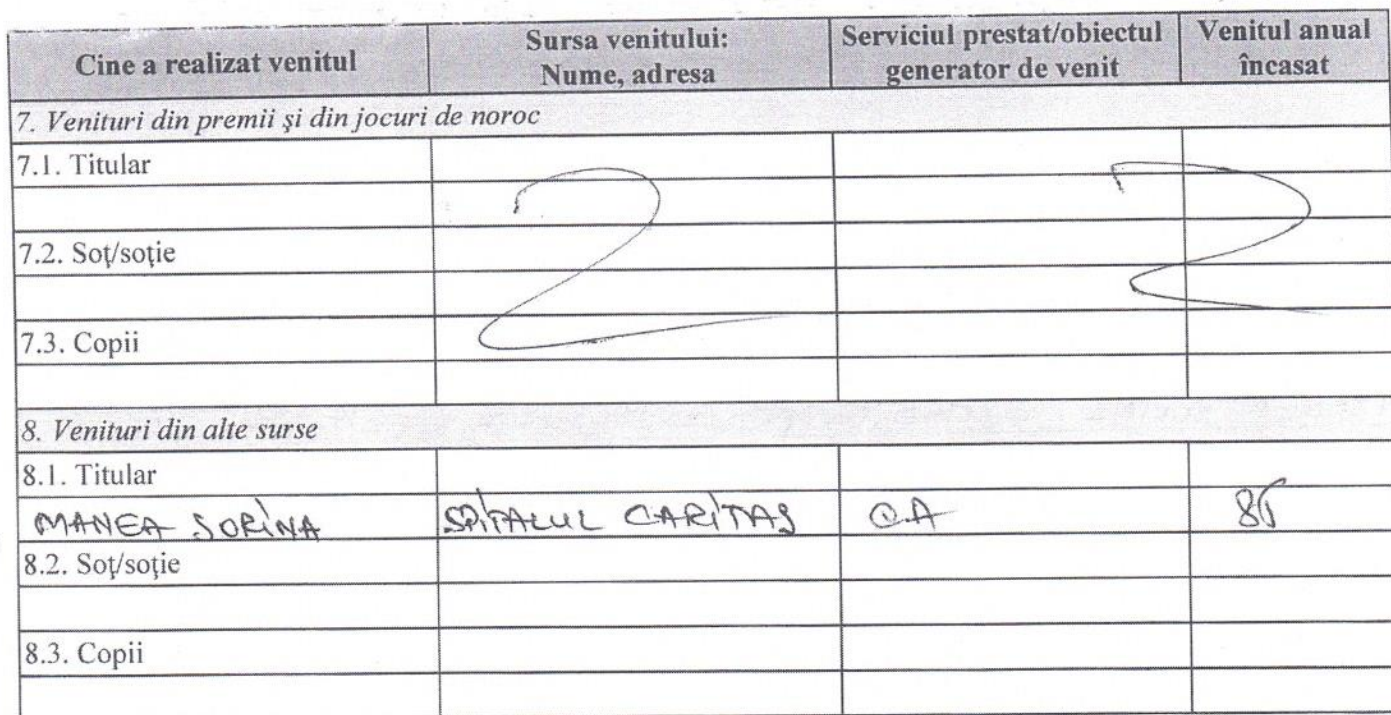 Cine a realizat venitul
Sursa venitului:
Nume, adresa
Serviciul prestat/obiectul
generator de venit
Venitul anual
încasat
7. Venituri din premii şi din jocuri de noroc
7.1. Titular
7.2. Soţ/soţie
7.3. Copii
8. Venituri din alte surse
8.1. Titular
MANEA SORINA
SPITALUL CARITAS
8.2. Soţ/soţie
8.3. Copii